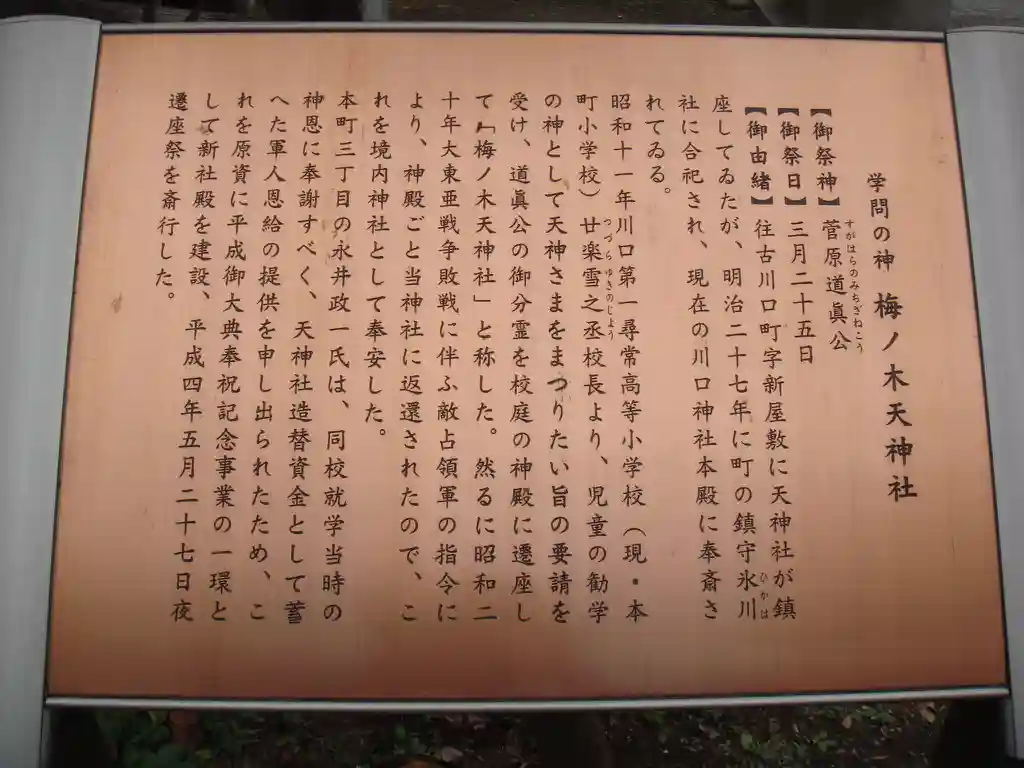 学問の神 梅ノ木天神社
【御祭神】菅原道眞公
すがはらのみちざねこう
【御祭日】三月二十五日
【御由緒】往古川口町字新屋敷に天神社が鎮
座してゐたが、明治二十七年に町の鎮守氷川
ひかは
社に合祀され、現在の川口神社本殿に奉斎さ
れてゐる。
昭和十一年川口第一尋常高等小学校（現・本
町小学校）廿楽雪之丞校長より、児童の勧学
つづらゆきのじよう
の神として天神さまをまつりたい旨の要請を
受け、道眞公の御分霊を校庭の神殿に遷座し
て「梅ノ木天神社」と称した。然るに昭和二
十年大東亜戦争敗戦に伴ふ敵占領軍の指令に
より、神殿ごと当神社に返還されたので、こ
れを境内神社として奉安した。
本町三丁目の永井政一氏は、同校就学当時の
神恩に奉謝すべく、天神社造替資金として蓄
へた軍人恩給の提供を申し出られたため、こ
れを原資に平成御大典奉祝記念事業の一環と
して新社殿を建設、平成四年五月二十七日夜
遷座祭を斎行した。